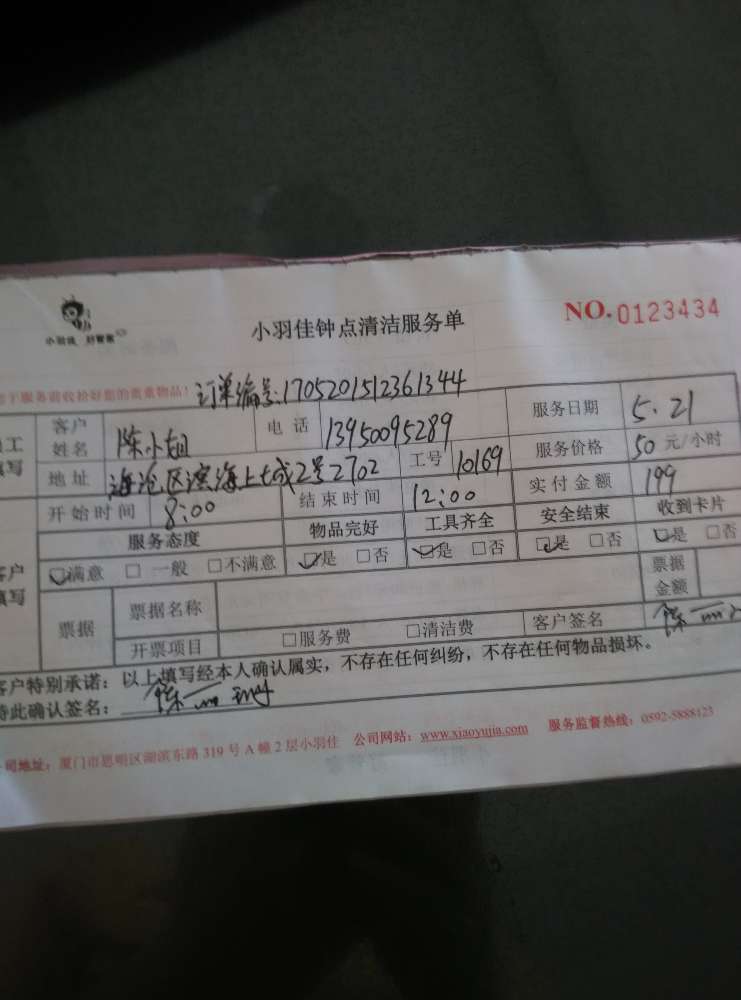 小羽佳 好管家
小羽佳钟点清洁服务单
NO.0123434
于服务前收拾好您的贵重物品!
订单编号:1705201512361344
客户姓名 陈小姐 电话 13950095289 服务日期 5.21
地址 海沧区滨海上城2号2702 工号 10169 服务价格 50 元/小时
开始时间 8:00 结束时间 12:00 实付金额 199
服务态度 物品完好 工具齐全 安全结束 收到卡片
☑满意 □一般 □不满意 ☑是 □否 ☑是 □否 ☑是 □否 ☑是 □否
票据 票据名称 票据金额
开票项目 □服务费 □清洁费 客户签名 陈
客户特别承诺:以上填写经本人确认属实,不存在任何纠纷,不存在任何物品损坏。
特此确认签名: 陈
司地址:厦门市思明区湖滨东路319号A幢2层小羽佳 公司网站:www.xiaoyujia.com 服务监督热线:0592-5888123